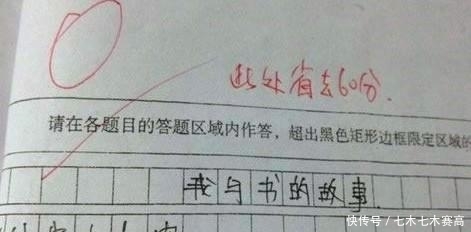 此处省去60分.
请在各题目的答题区域内作答，超出黑色矩形边框限定区域的
我与书的故事.
快传号／七木七木赛高